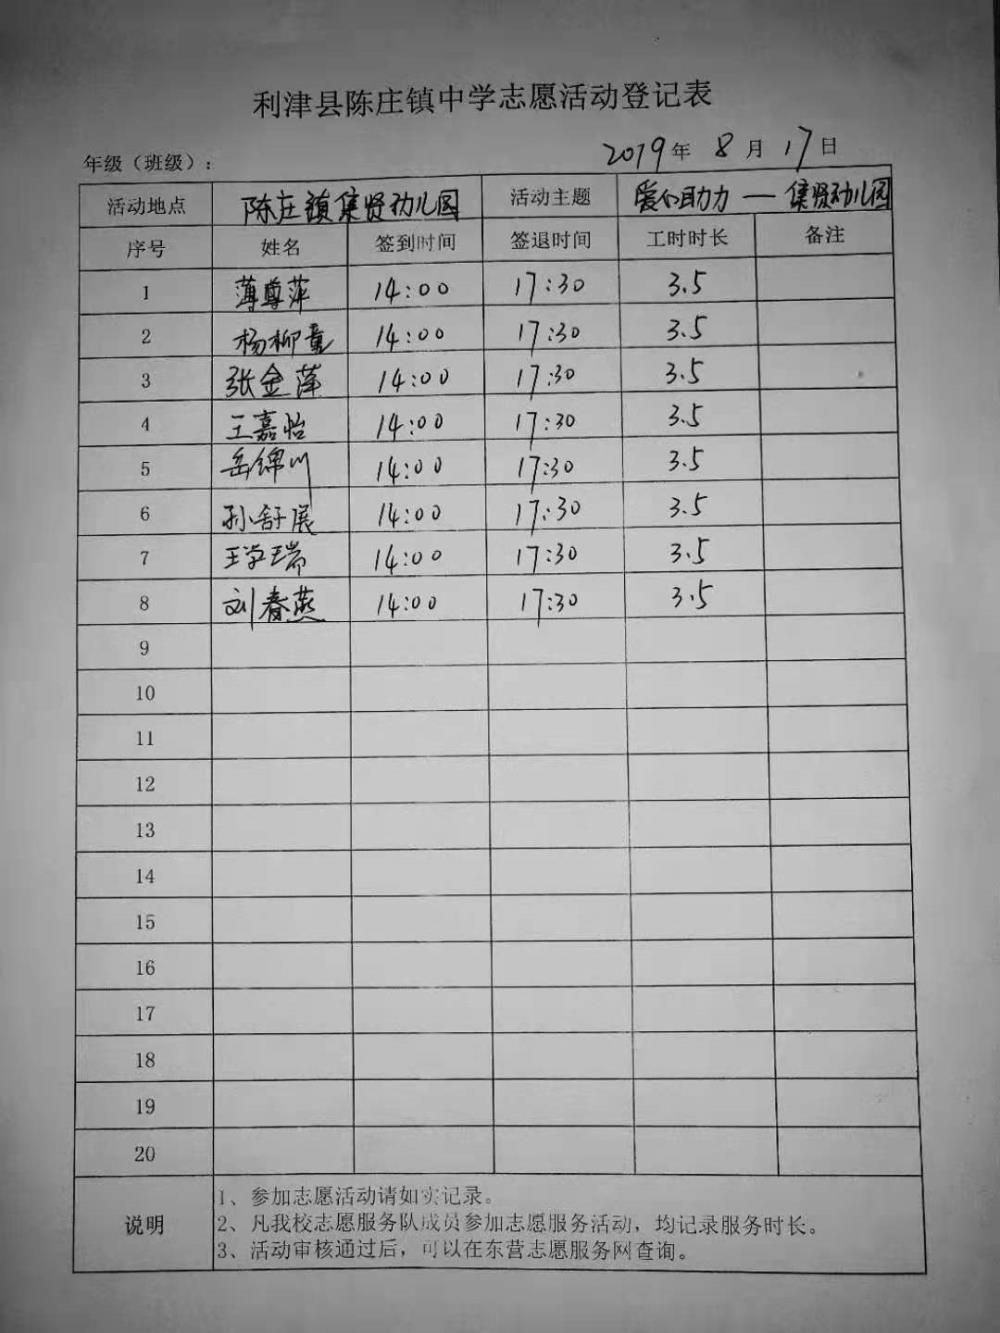 利津县陈庄镇中学志愿活动登记表
年级（班级）： 2019年 8月 17日
活动地点 陈庄镇集贤幼儿园 活动主题 爱心助力 — 集贤幼儿园
序号 姓名 签到时间 签退时间 工时时长 备注
1 薄尊萍 14:00 17:30 3.5
2 杨柳童 14:00 17:30 3.5
3 张金萍 14:00 17:30 3.5
4 王嘉怡 14:00 17:30 3.5
5 岳锦川 14:00 17:30 3.5
6 孙舒展 14:00 17:30 3.5
7 王学瑞 14:00 17:30 3.5
8 刘春燕 14:00 17:30 3.5
9
10
11
12
13
14
15
16
17
18
19
20
说明
1、参加志愿活动请如实记录。
2、凡我校志愿服务队成员参加志愿服务活动，均记录服务时长。
3、活动审核通过后，可以在东营志愿服务网查询。